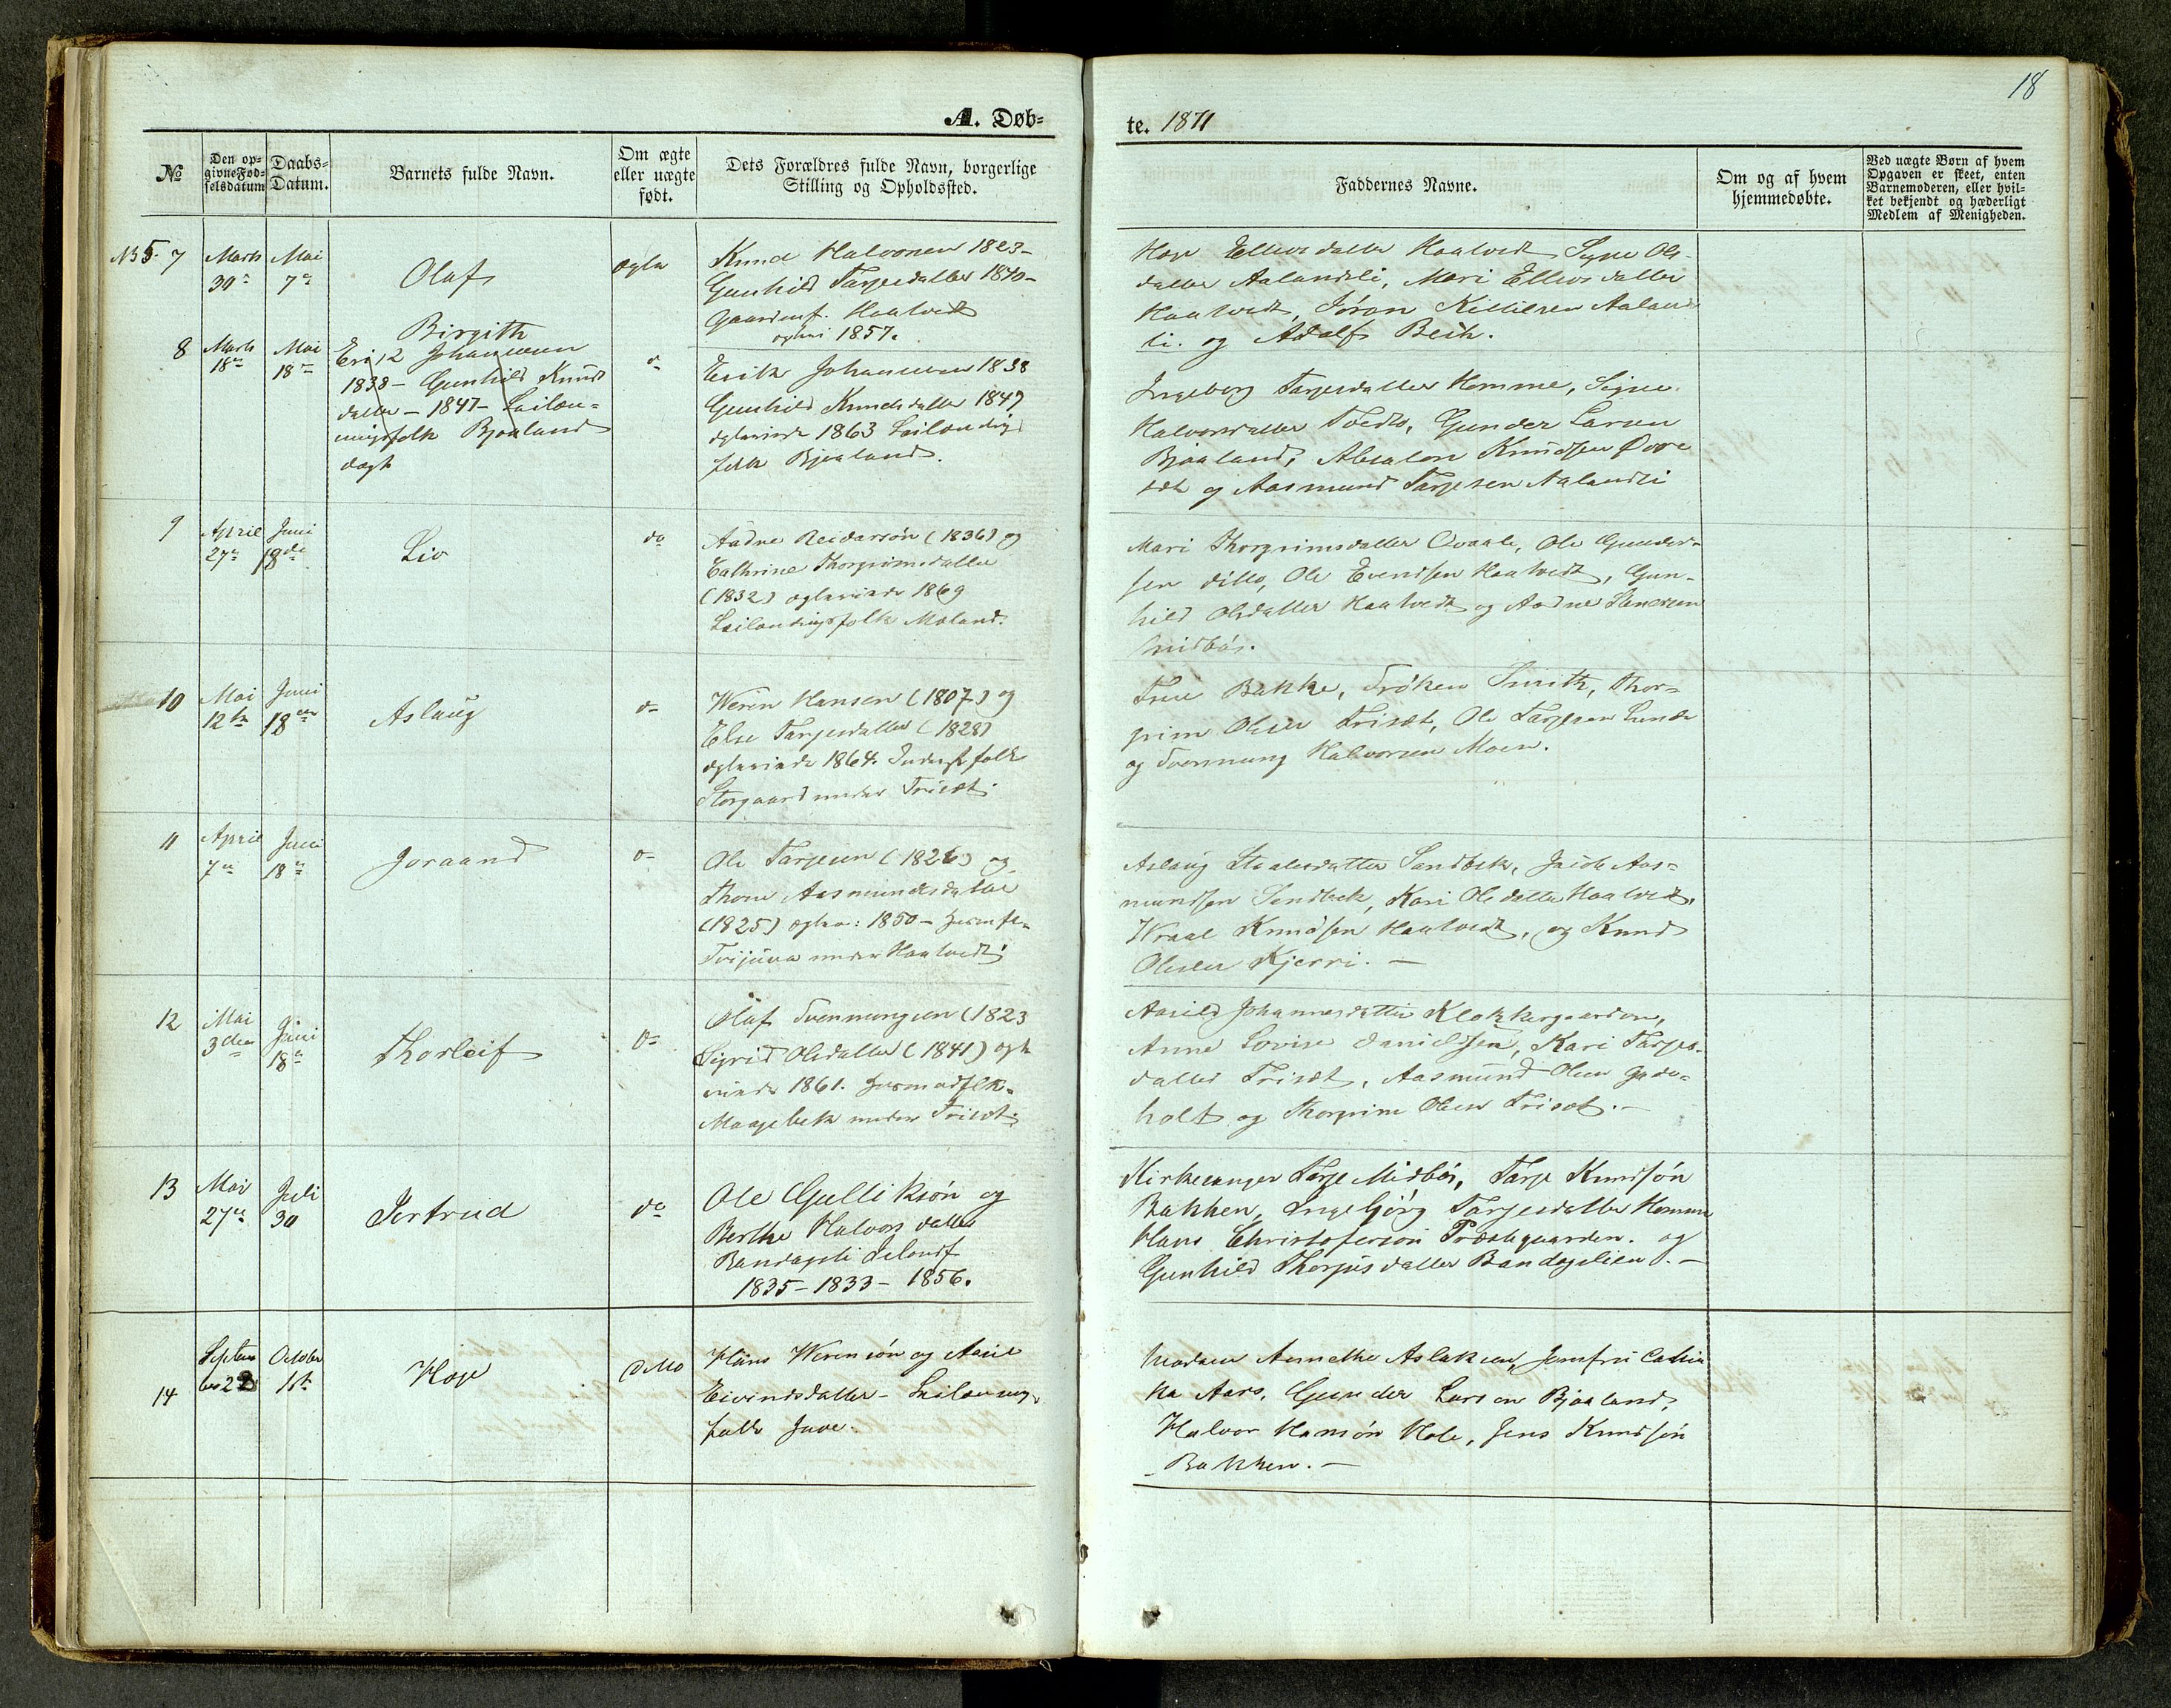 18
A. Døb=
te. 1871
№
Den op=
givne Fød=
selsdatum
Daabs=
Datum.
Barnets fulde Navn.
Om ægte
eller uægte
født.
Dets Forældres fulde Navn, borgerlige
Stilling og Opholdssted.
Faddernes Navne.
Om og af hvem
hjemmedøbte.
Ved uægte Børn af hvem
Opgaven er skeet, enten
Barnemoderen, eller hvil=
ket bekjendt og hæderligt
Medlem af Menigheden.
7
Marts
30
Mai
7
Olaf
ægte
Knud Halvorsen 1823-
Gunhild Tarjesdatter 1840-
Gaardmf. Haatvedt
1857.
Ellevsdatter Haatvedt Signe Ols-
datter Aalandsli, Mari Ellevsdatter
Haatvedt, Jøran Aaland
li. og Adolf Bech.
8
Marts
18
Mai
18
Birgith
Erik Johannesen
1838 - Gunhild Knuds
datter - 1847 - Leilæn-
dingsfolk Bjaaland
Erik Johannesen 1838
Gunhild Knudsdatter 1847
ægteviede 1863 Leilændings
folk Bjaaland.
Ingeborg Tarjesdatter Homme, Signe
Halvorsdatter Gunder Larsen
Bjaaland, Absalon Knudsen
og Aasmund Tarjesen Aalandsli
9
April
27
Juni
18de
Liv
do
Aadne Reidarsøn (1836) og
Cathrine Thorgrimsdatter
(1832) ægteviede 1869
Leilændingsfolk Moland.
Mari Thorgrimsdatter Qvaale, Ole Gunder-
sen ditto, Ole Evendsen Haatvedt, Gun-
hild Olsdatter Haatvedt og Aadne
Midbøe.
10
Mai
12te
Juni
18
Aslaug
Weren Hansen (1807) og
Else Tarjesdatter (1828)
ægteviede 1864. Inderstfolk
Storgaard under Triset.
Frue Bakke, Frøken Smith, Thor-
grim Olsen Triset, Ole Tarjesen Lunde
og Tvennung Halvorsen Moen.
11
April
7
Juni
18
Joraand
Ole Tarjesen (1826) og
Thone Aasmundsdatter
(1825) ægtev: 1850 -
under Haatvedt
Aslaug Staalesdatter Sandbek, Jacob Aas-
mundsen Sandbek, Kari Olsdatter Haatvedt,
Wraal Knudsen Haatvedt, og Knud
Olsen Kjerri. -
12
Mai
3
Juni
18
Thorleif
Olaf Tvennungsen (1823
Sigrid Olsdatter (1841) ægte
viede 1861.
Maagebek under Triset.
Aasild Johannesdatter Klokkergaarden,
Anne Lovise Danielsen, Kari Tarjes-
datter Triset, Aasmund Olsen
holt og Thorgrim Olsen Triset. -
13
Mai
27
Juli
30
Gertrud
do
Ole Gulliksøn og
Berthe Halvorsdatter
Bandagsli
1835 - 1833 - 1856.
Kirkesanger Tarje Midbøe, Tarje Knudsøn
Bakken, Ingebjørg Tarjesdatter Homme
Hans Christofersøn Præstegaarden. og
Gunhild Thorjusdatter Bandagslien. -
14
Septem
ber 28
October
1ste
Ditto
Hans Werensøn og Aasie
Eivindsdatter - Leilændings
folk Juve.
Madam Asmethe Aslaksen, Jomfru Cathin
ka Aars, Gunder Larsen Bjaaland,
Halvor Hansøn Hole, Jens Knudsøn
Bakken. -